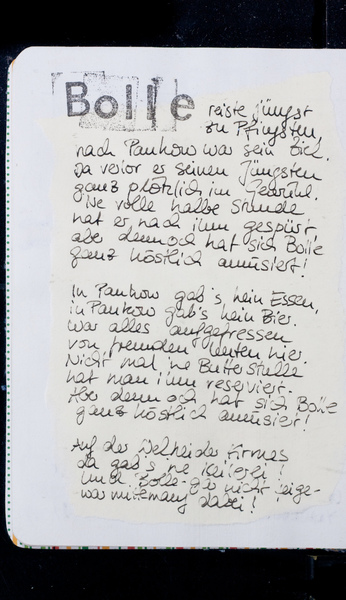 Bolle reiste jüngst
zu Pfingsten,
nach Pankow war sein Ziel.
Da verlor er seinen Jüngsten
ganz plötzlich im Gewühl.
'Ne volle halbe Stunde
hat er nach ihm gespürt
aber dennoch hat sich Bolle
ganz köstlich amüsiert!
In Pankow gab's kein Essen,
in Pankow gab's kein Bier.
War alles aufgefressen
von fremden Leuten hier.
Nicht mal 'ne Butterstulle
hat man ihm reserviert.
Aber dennoch hat sich Bolle
ganz köstlich amüsiert!
Auf der Schönholzer Heide
da gab's 'ne Keilerei!
Und Bolle gar nicht feige
war mittenmang dabei!